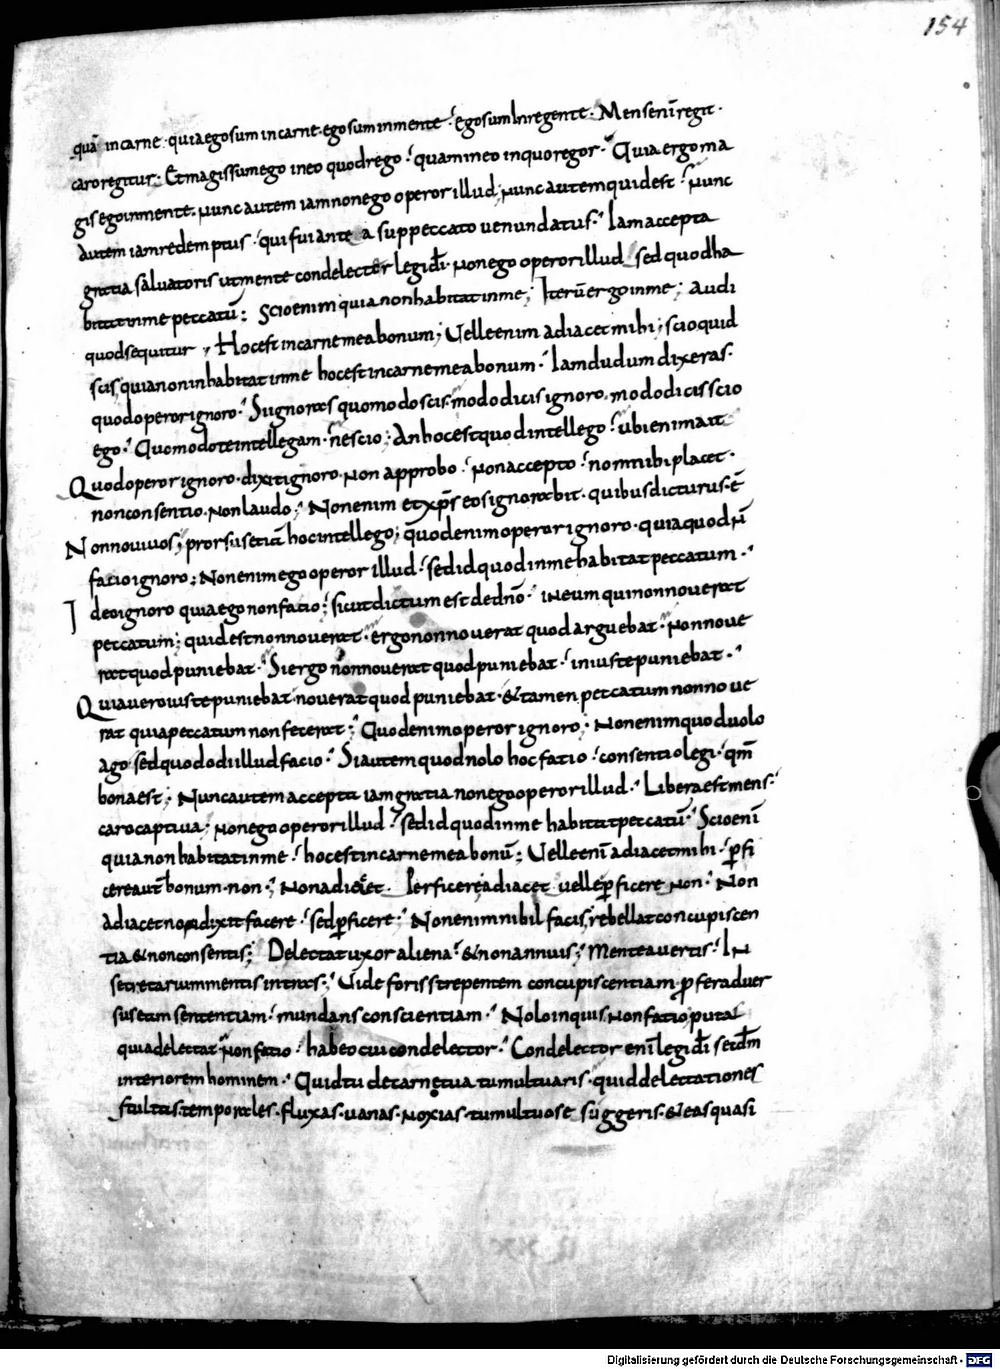 154
quā in carne · quia ego sum in carne · ego sum in mente · ego sum In regente · Mens enī regit ·
caro regitur : Et magis sum ego in eo quod rego · quam in eo in quo regor · Quia ergo ma
gis ego in mente · Nunc autem iam non ego operor illud · Nunc autem quid est · Nunc
autem iam redemptus · qui fui ante a sub peccato uenundatus · Iam accepta
gratia saluatoris ut mente condelecter legi dī · Non ego operor illud sed quod ha
bitat in me peccatū : Scio enim quia non habitat in me ; Iterū ergo in me ; Audi
quod sequitur , Hoc est in carne mea bonum ; Uelle enim adiacet mihi ; scio quid
scis , quia non inhabitat in me hoc est in carne mea bonum · Iamdudum dixeras ·
quod operor ignoro · Si ignoras quomodo scis · modo dicis ignoro , modo dicis scio
ego · Quomodo te intellegam · nescio ; An hoc est quod intellego · ubi enim ait
Quod operor ignoro · dixit ignoro · Non approbo · Non accepto · non mihi placet ·
non consentio · Non laudo ; Non enim et xp̄s eos ignorabit · quibus dicturus · ē
Non noui uos ; prorsus etiā hoc intellego ; quod enim operor ignoro · quia quod N̄
facio ignoro ; Non enim ego operor illud · sed id quod in me habitat peccatum ·
Ideo ignoro quia ego non facio ; sicut dictum est de dn̄o · in eum qui non nouerat
peccatum ; quid est non nouerat · ergo non nouerat quod arguebat · Non noue
rat quod puniebat · Si ergo non nouerat quod puniebat · iniuste puniebat ·
Quia uero iuste puniebat · nouerat quod puniebat · & tamen peccatum non noue
rat quia peccatum non fecerat ; Quod enim operor ignoro ; Non enim quod uolo
ago sed quod odi illud facio · Si autem quod nolo hoc facio · consentio legi · qm̄
bona est ; Nunc autem accepta iam gratia non ego operor illud · Libera est mens ·
caro captiua ; Non ego operor illud · sed id quod in me habitat peccatū · Scio enī
quia non habitat in me · hoc est in carne mea bonū ; Uelle enī adiacet mihi · ꝑfi
cere aut̄ bonum · non · ; Non adicit · Perficere adiacet uelle ꝑficere Non · Non
adiacet non dixit facere · sed ꝑficere · Non enim nihil facis , rebellat concupiscen
tia & non consentis ; Delectat uxor aliena · & non annuis ; Mente auertis · IN
secretarium mentis intras ; Uide foris strepentem concupiscentiam ꝑfer aduer
sus eam sententiam · mundans conscientiam · Nolo inquis · non facio puta
quia delectat non facio · habeo cui condelector · Condelector enī legi dī secdm̄
interiorem hominem · Quid tu de carne tua tumultuaris · quid delectationes
stultas · temporales · fluxas · uanas · Noxias · tumultuose suggeris · & eas quasi
Digitalisierung gefördert durch die Deutsche Forschungsgemeinschaft - DFG